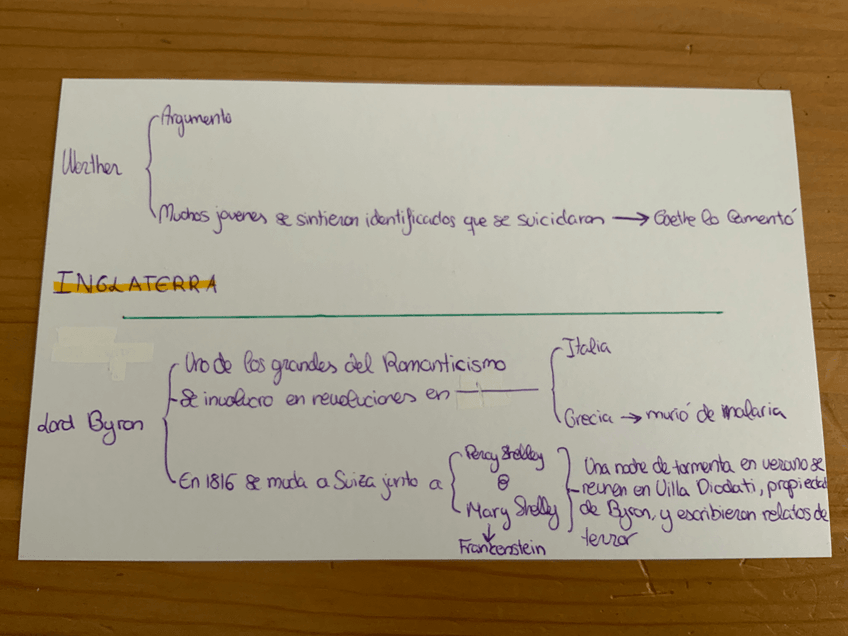 Argumento
Werther
Muchos jovenes se sintieron identificados que se suicidaron → Goethe lo lamentó
INGLATERRA
Uno de los grandes del Romanticismo
Italia
Se involucro en revoluciones en
Grecia → murió de malaria
Lord Byron
En 1816 se muda a Suiza junto a
Percy Shelley
Mary Shelley
Frankenstein
Una noche de tormenta en verano se
reunen en Villa Diodati, propiedad
de Byron, y escribieron relatos de
terror